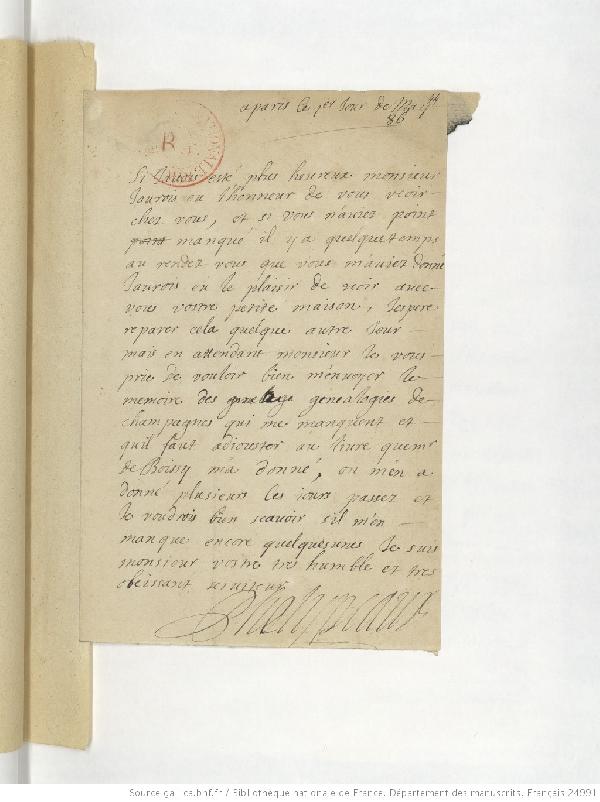 a paris le 1er Jour de May
86
R
Si Javois esté plus heureux monsieur
Jaurois eu l'honneur de vous veoir
chez vous, et si vous n'auiez point
point manqué il y a quelque temps
au rendez vous que vous m'auiez donné
Jaurois eu le plaisir de voir auec
vous vostre petite maison, Jespere
reparer cela quelque autre Jour
mais en attendant monsieur Je vous
prie de vouloir bien m'enuoyer le
memoire des genealogies de
champagnes qui me manquent et
quil faut adiouster au liure que mr
de Boissy m'a donné, on m'en a
donné plusieurs les iours passez et
Je voudrois bien scauoir s'il m'en
manque encore quelques unes Je suis
monsieur vostre tres humble et tres
obeissant seruiteur
Source gallica.bnf.fr / Bibliothèque nationale de France. Département des manuscrits. Français 24991